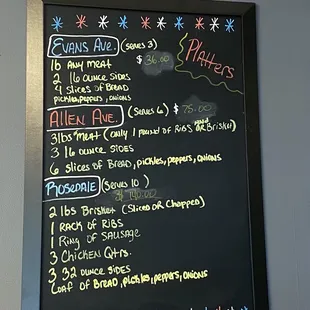 Platters
EVANS AVE. (SERVES 3) $36.00
lb ANY MEAT
2 16 OUNCE SIDES
4 SLICES OF BREAD
PICKLES, PEPPERS, ONIONS
ALLEN AVE. (SERVES 6) $75.00
3lbs MEAT (ONLY 1 POUND OF RIBS OR BRISKET)
3 16 OUNCE SIDES
6 SLICES OF BREAD, PICKLES, PEPPERS, ONIONS
ROSEDALE (SERVES 10)
2 lbs BRISKET (SLICED OR CHOPPED)
1 RACK OF RIBS
1 RING OF SAUSAGE
3 CHICKEN QTRS.
3 32 OUNCE SIDES
LOAF OF BREAD, PICKLES, PEPPERS, ONIONS